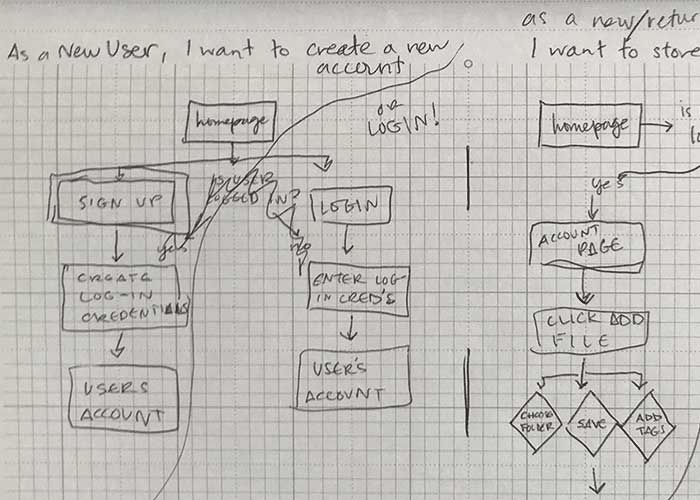 As a New User, I want to create a new
account
or
LOGIN!
homepage
IS USER
LOGGED IN?
yes
no
SIGN UP
CREATE
LOG-IN
CREDENTIALS
USERS
ACCOUNT
LOGIN
ENTER LOG-
IN CRED'S
USER'S
ACCOUNT
as a new/retur
I want to store
homepage
is
yes
ACCOUNT
PAGE
CLICK ADD
FILE
CHOOSE
FOLDER
SAVE
ADD
TAGS